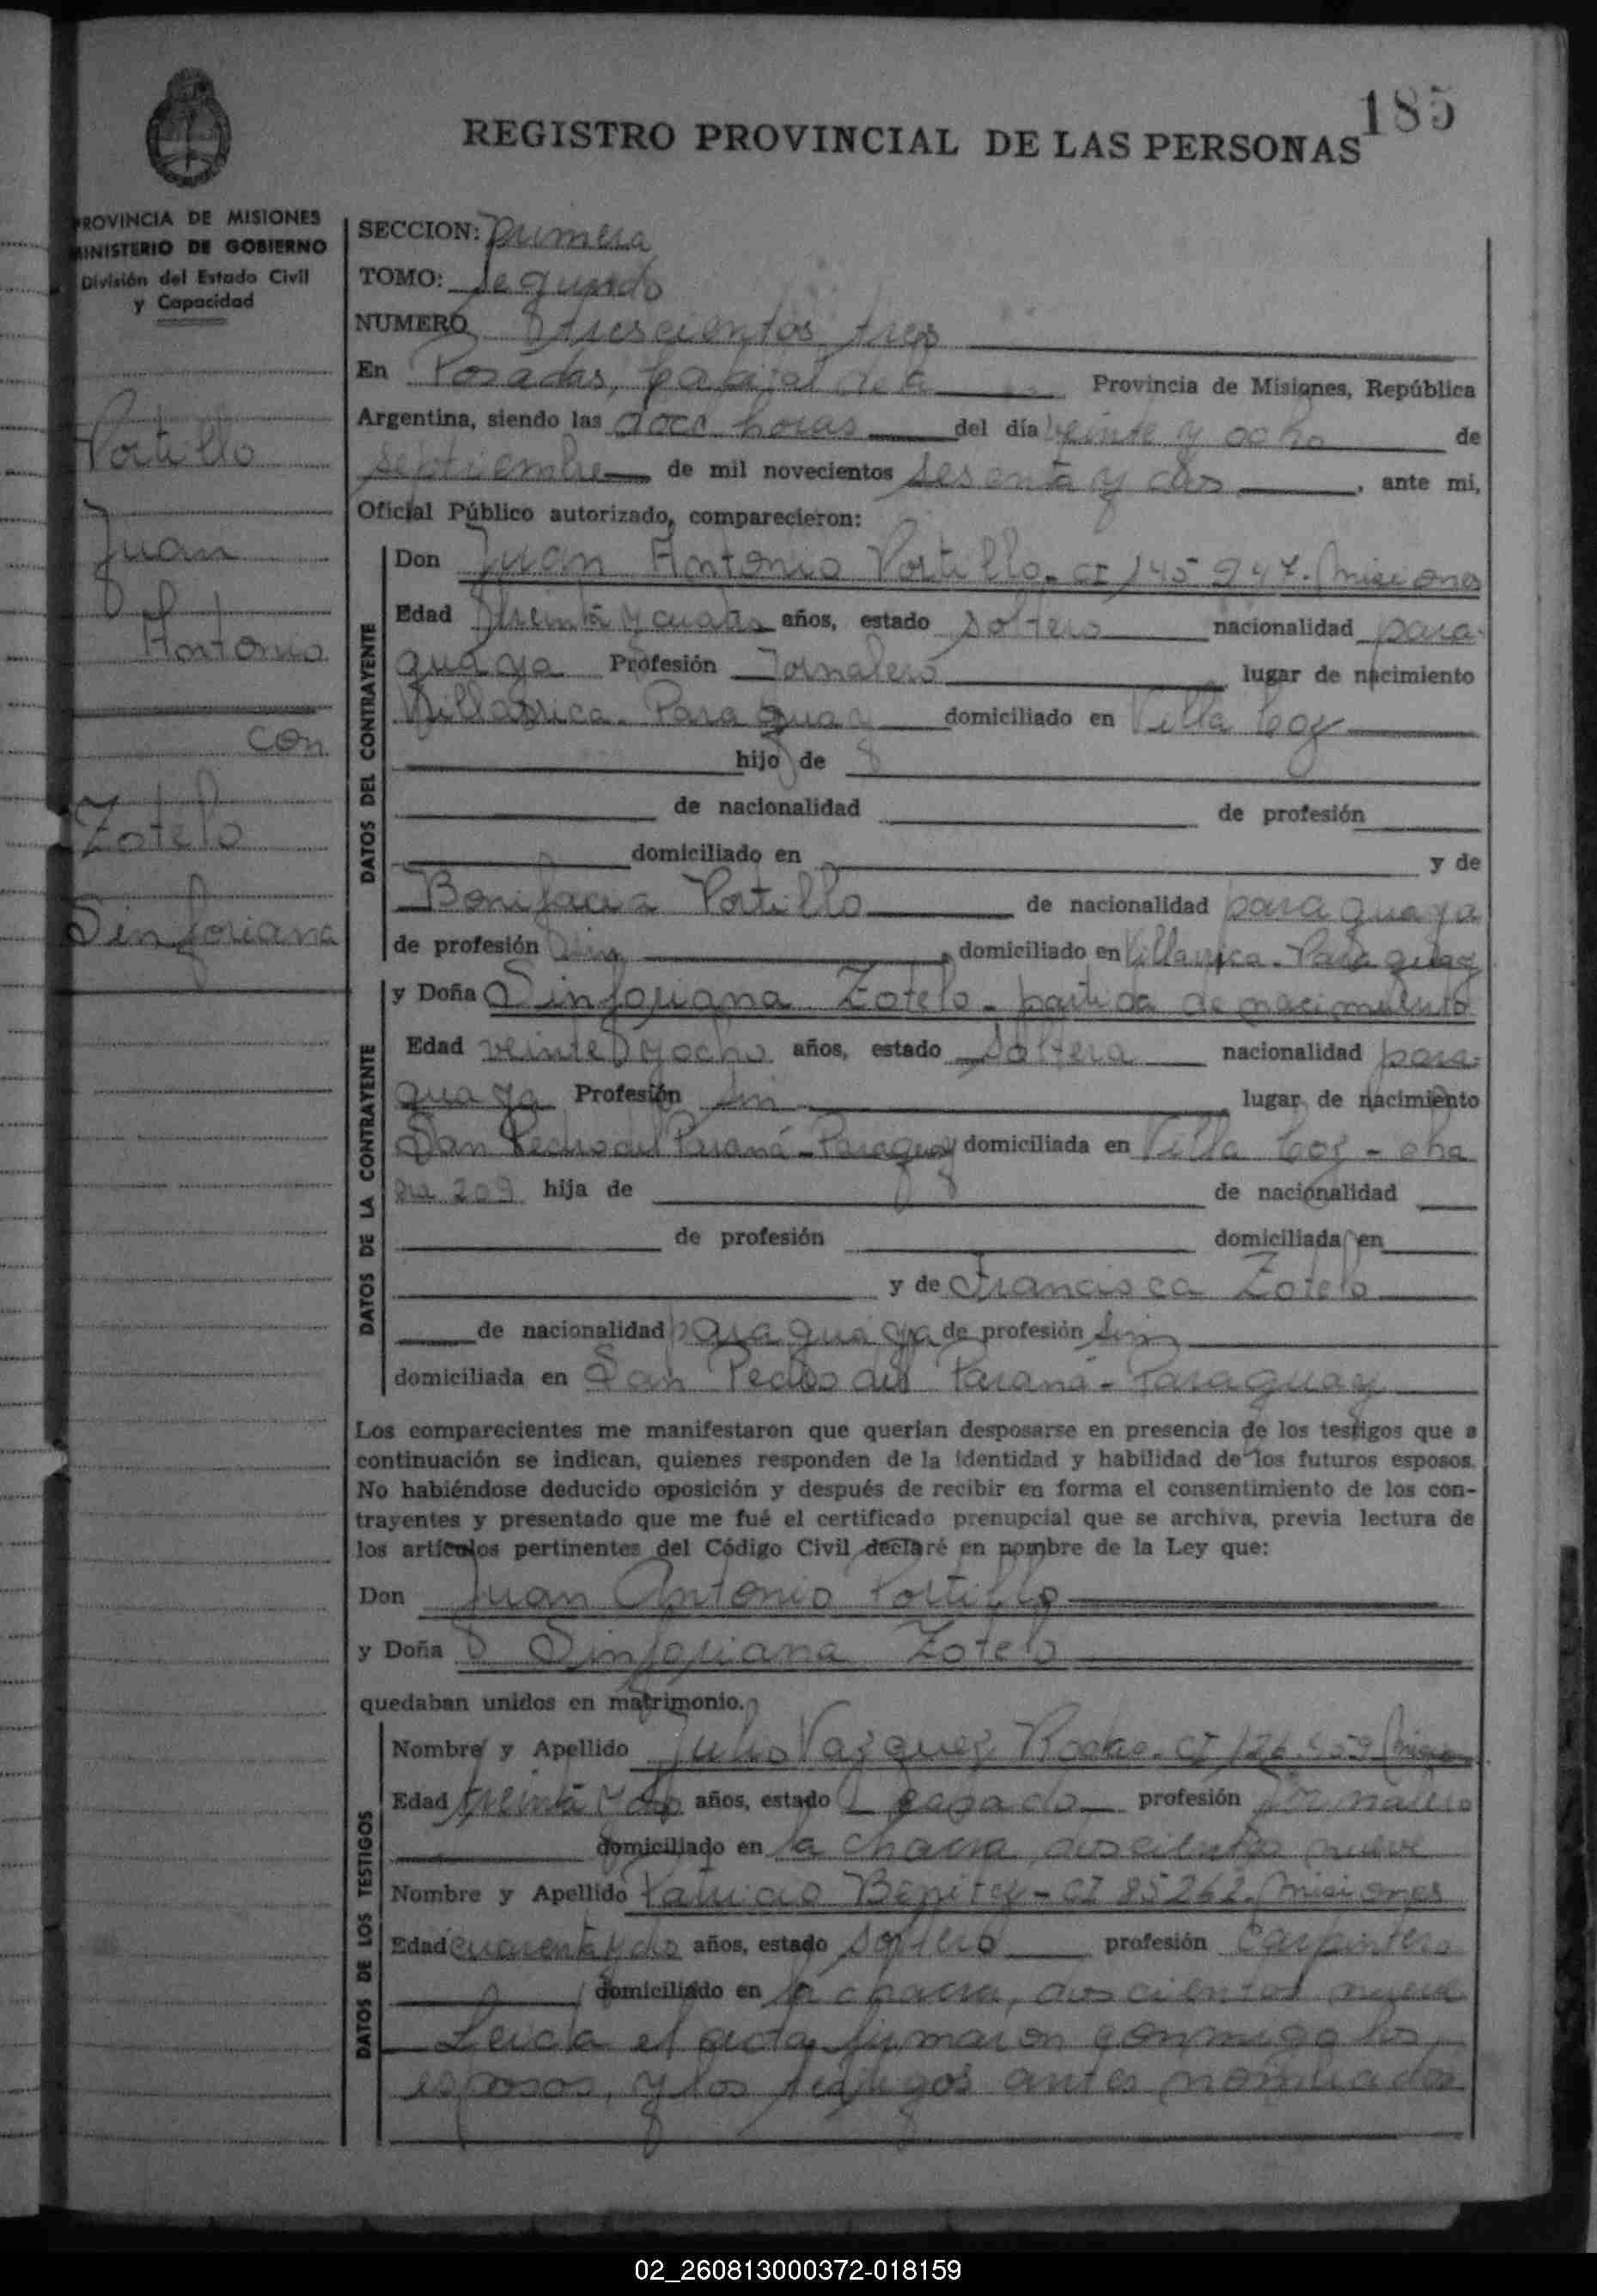 185
REGISTRO PROVINCIAL DE LAS PERSONAS
PROVINCIA DE MISIONES
MINISTERIO DE GOBIERNO
División del Estado Civil
y Capacidad
Portillo
Juan
Antonio
con
Zotelo
Sinforiana
SECCION: Primera
TOMO: Segundo
NUMERO trescientos tres
En Posadas, Capital de la Provincia de Misiones, República
Argentina, siendo las doce horas del día veinte y ocho de
septiembre de mil novecientos sesenta y dos, ante mi,
Oficial Público autorizado, comparecieron:
DATOS DEL CONTRAYENTE
Don Juan Antonio Portillo - CI 145 947 - Misiones
Edad treinta y cuatro años, estado soltero nacionalidad para-
guaya Profesión Jornalero lugar de nacimiento
Villarrica - Paraguay domiciliado en Villa Coz
hijo de
de nacionalidad de profesión
domiciliado en y de
Bonifacia Portillo de nacionalidad paraguaya
de profesión sin, domiciliado en Villarrica - Paraguay
DATOS DE LA CONTRAYENTE
y Doña Sinforiana Zotelo - partida de nacimiento
Edad veinte y ocho años, estado soltera nacionalidad para-
guaya Profesión sin lugar de nacimiento
San Pedro del Paraná - Paraguay domiciliada en Villa Coz - cha
cra 209 hija de de nacionalidad
de profesión domiciliada en
y de Francisca Zotelo
de nacionalidad paraguaya de profesión sin
domiciliada en San Pedro del Paraná - Paraguay
Los comparecientes me manifestaron que querían desposarse en presencia de los testigos que a
continuación se indican, quienes responden de la identidad y habilidad de los futuros esposos.
No habiéndose deducido oposición y después de recibir en forma el consentimiento de los con-
trayentes y presentado que me fué el certificado prenupcial que se archiva, previa lectura de
los artículos pertinentes del Código Civil declaré en nombre de la Ley que:
Don Juan Antonio Portillo
y Doña Sinforiana Zotelo
quedaban unidos en matrimonio.
DATOS DE LOS TESTIGOS
Nombre y Apellido Julio Vazquez CI
Edad treinta y dos años, estado casado profesión Jornalero
domiciliado en la chacra doscientos nueve
Nombre y Apellido Patricio Benitez - CI 85262 - Misiones
Edad cuarenta y dos años, estado soltero profesión Carpintero
domiciliado en la chacra, doscientos nueve
Leida el acta firmaron conmigo los
esposos, y los testigos antes nombrados
02_260813000372-018159